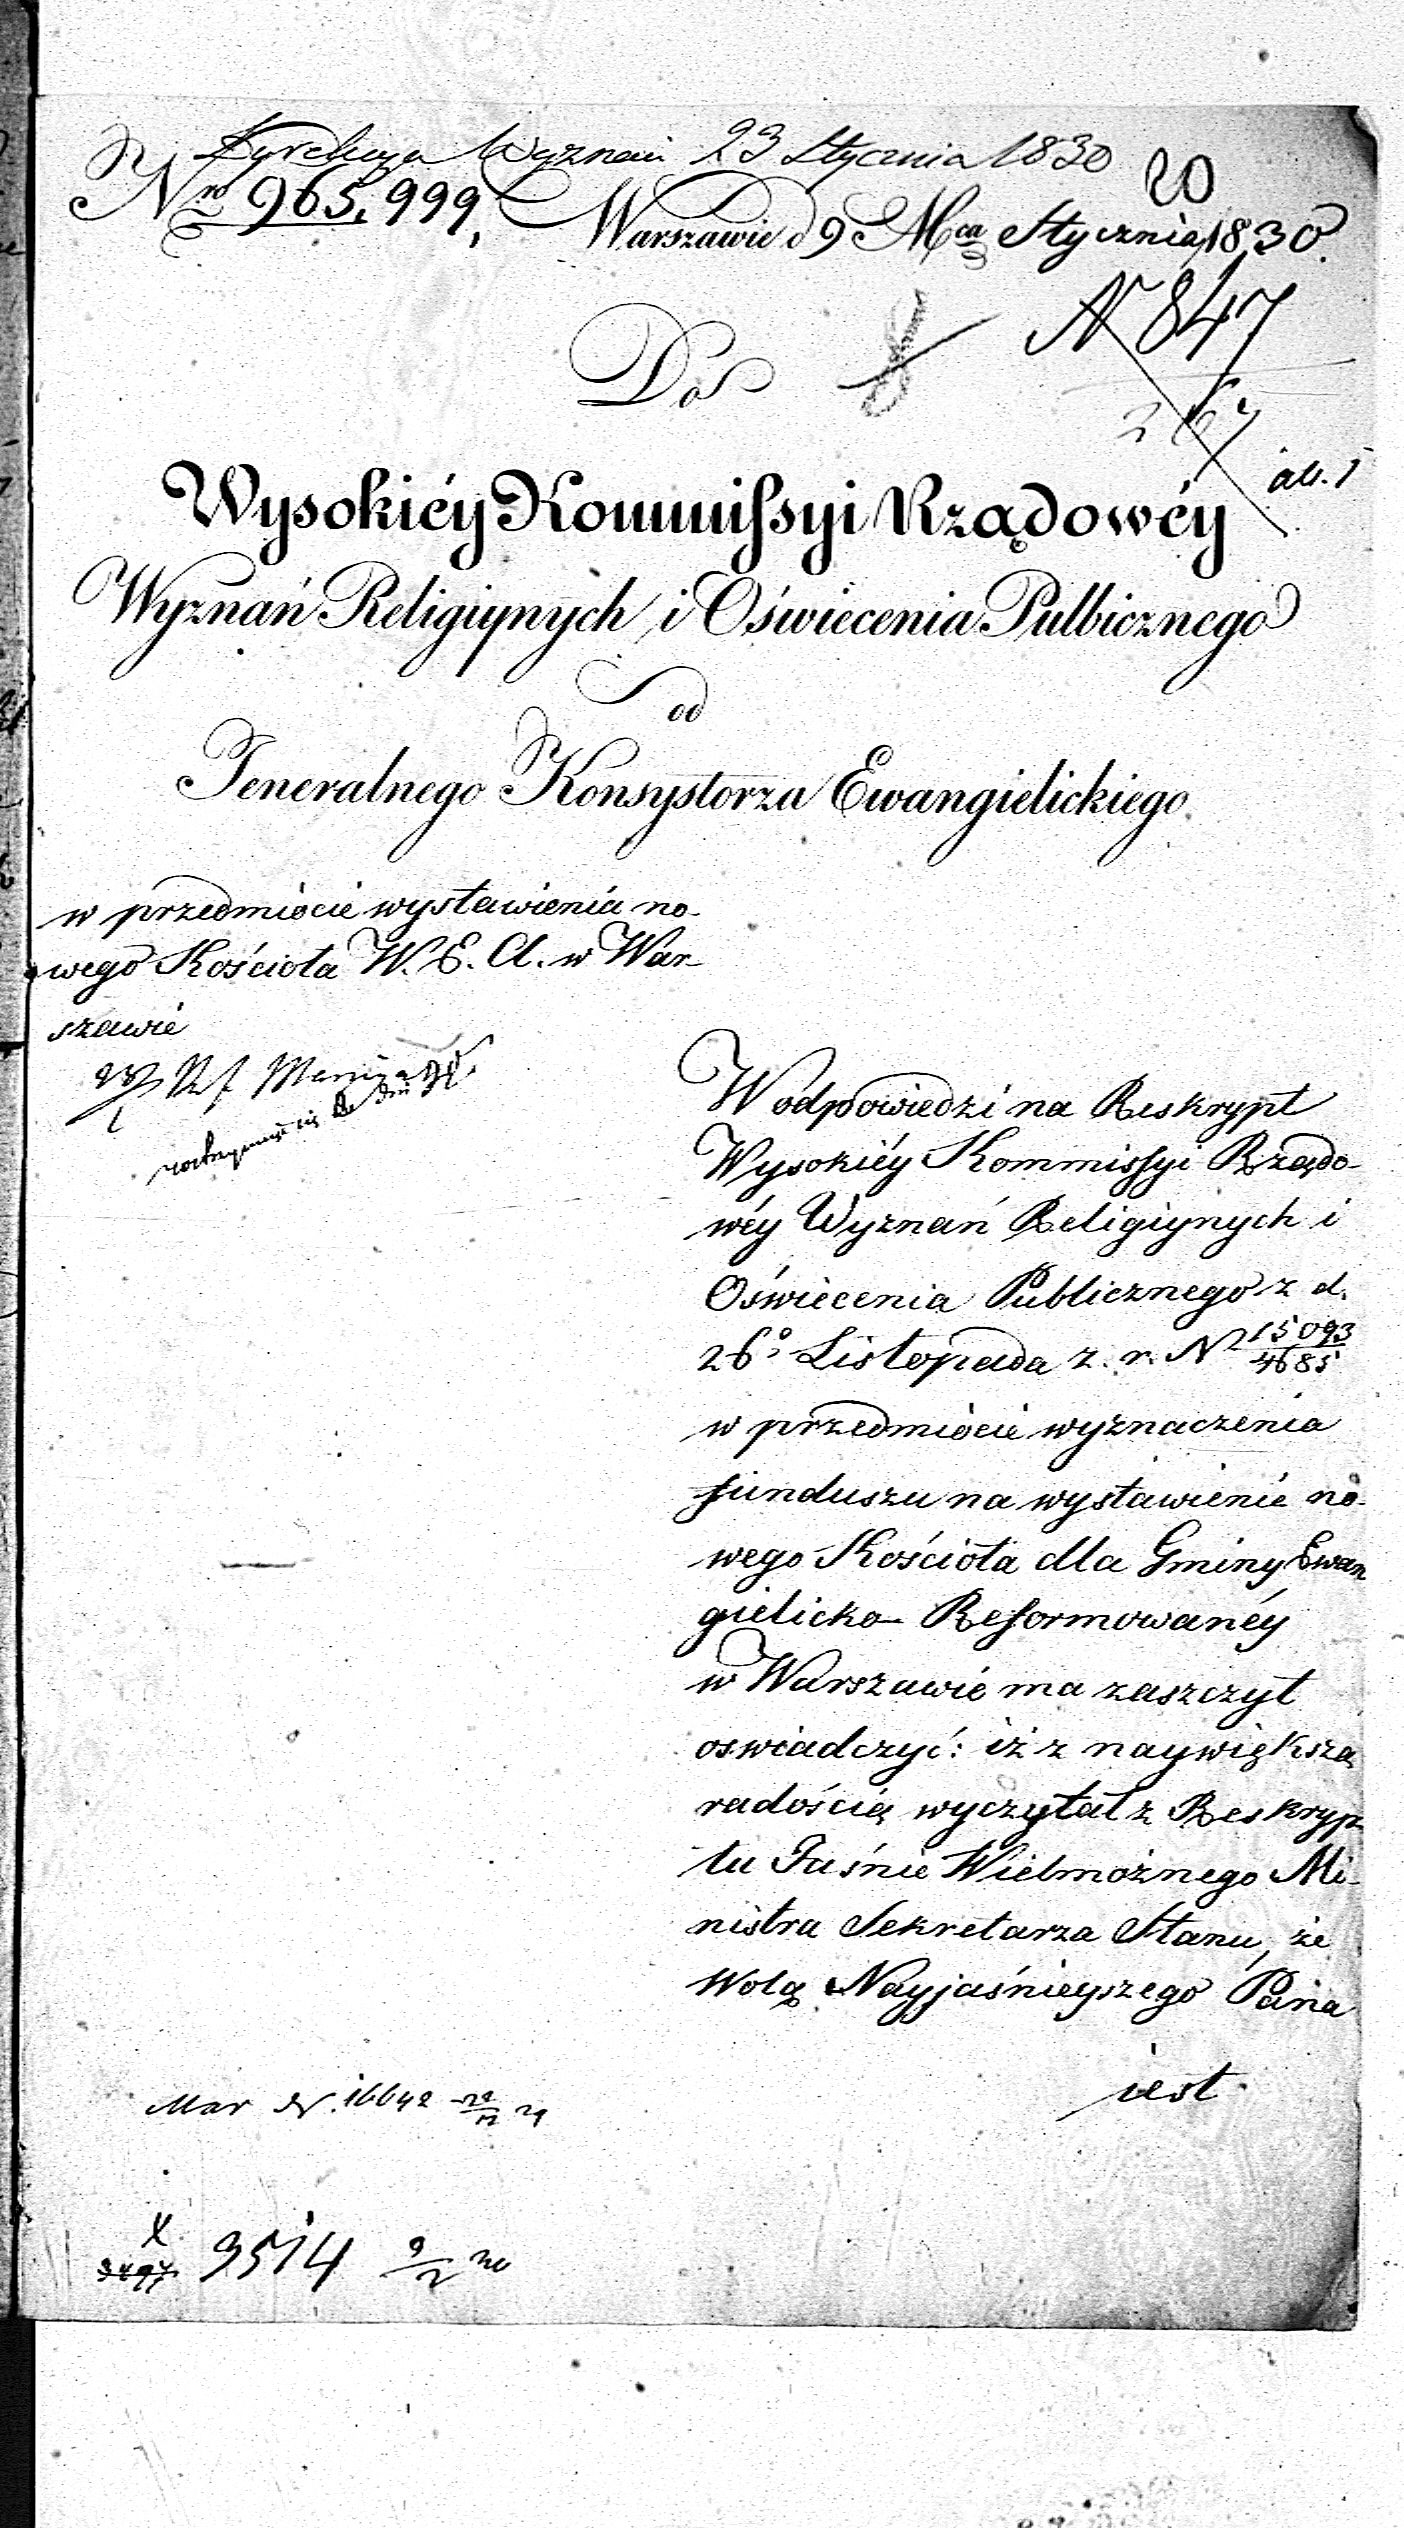 Dyrekcya Wyznań 23 Stycznia 1830
20
Nro 965,999,
Warszawie d 9 Mca Stycznia 1830.
Do
N 847
267
al. 1
Wysokiéy Kommissyi Rządowéy
Wyznań Religiynych i Oświecenia Pulbicznego
od
Jeneralnego Konsystorza Ewangielickiego
w przedmiocie wystawienia no-
wego Kościoła W. E. A. w War-
szawie
W odpowiedzi na Reskrypt
Wysokiéy Kommissyi Rządo-
wéy Wyznań Religiynych i
Oświecenia Publicznego z d.
26o Listopada z. r. N 15093/4685
w przedmiocie wyznaczenia
funduszu na wystawienie no-
wego Kościoła dla Gminy Ewan
gielicko-Reformowanéy
w Warszawie ma zaszczyt
oswiadczyć: iż z naywiększą
radością wyczytał z Reskryp-
tu Jaśnie Wielmożnego Mi-
nistra Sekretarza Stanu, że
Wolą Nayjaśnieyszego Pana
iest
Mar N. 16642 29/12 29
3514 9/2 30